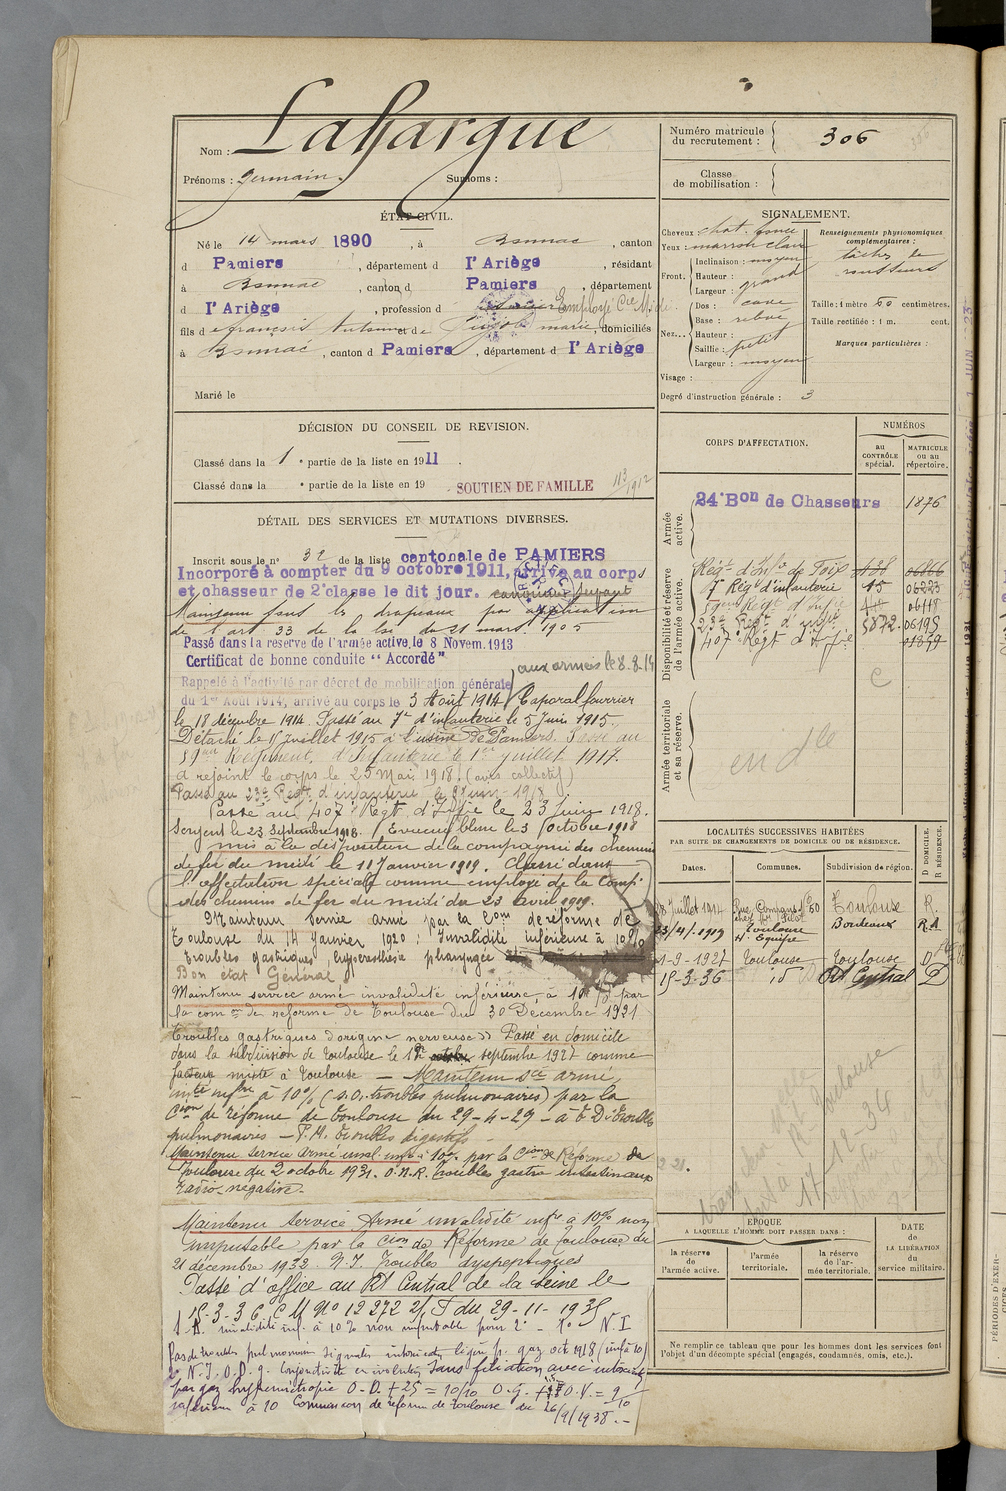 Nom : Lafargue
Prénoms : Germain. Surnoms :
Numéro matricule du recrutement : 306
Classe de mobilisation :
ÉTAT CIVIL.
Né le 14 mars 1890, à Bonnac, canton
d Pamiers, département d l'Ariège, résidant
à Bonnac, canton d Pamiers, département
d l'Ariège, profession d Employé Cie Midi
fils d e françois Antoine et de Pujol marie, domiciliés
à Bonnac, canton d Pamiers, département d l'Ariège
Marié le
SIGNALEMENT.
Cheveux chat. foncé
Yeux : marron clair
Front. Inclinaison : moyen
Hauteur : grand
Largeur :
Nez... Dos : cave
Base : relevé
Hauteur :
Saillie : petit
Largeur : moyen
Visage :
Degré d'instruction générale : 3
Renseignements physionomiques complémentaires :
tâches de rousseurs
Taille : 1 mètre 60 centimètres.
Taille rectifiée : 1 m. cent.
Marques particulières :
DÉCISION DU CONSEIL DE REVISION.
Classé dans la 1e partie de la liste en 1911.
Classé dans la e partie de la liste en 19
SOUTIEN DE FAMILLE 113/1912
DÉTAIL DES SERVICES ET MUTATIONS DIVERSES.
Inscrit sous le n° 32 de la liste cantonale de PAMIERS
Incorporé à compter du 9 octobre 1911, arrivé au corps
et chasseur de 2e classe le dit jour.
Maintenu sous les drapeaux par application
de l'art 33 de la loi du 21 mars 1905
Passé dans la réserve de l'armée active, le 8 Novem. 1913
Certificat de bonne conduite "Accordé"
Rappelé à l'activité par décret de mobilisation générale
du 1er Août 1914, arrivé au corps le 3 Août 1914 aux armées le 8.8.14 Caporal fourrier
le 18 décembre 1914. Passé au 7e d'infanterie le 5 Juin 1915.
Détaché le 11 Juillet 1915 à l'usine de Pamiers. Passé au
59eme Régiment d'Infanterie le 1er juillet 1917.
a rejoint le corps le 25 Mai 1918. (avis collectif)
Passé au 23e Regt d'infanterie le
Passé au 407e Régt d'Infie le 23 Juin 1918.
Sergent le 23 Septembre 1918. Evacué blessé le 3 Octobre 1918
mis à la disposition de la compagnie des chemins
de fer du midi le 11 Janvier 1919. Classé dans
l'affectation spéciale comme employé de la Compie
des chemins de fer du midi du 23 avril 1919.
Maintenu Service armé par la Com de réforme de
Toulouse du 14 Janvier 1920 : Invalidité inférieure à 10%
troubles gastriques hyperesthésie pharyngée
Bon état Général
Maintenu service armé invalidité inférieure à 10% par
la com on de réforme de Toulouse du 30 Décembre 1921
troubles gastriques d'origine nerveuse » Passé en domicile
dans la subdivision de Toulouse le 1er septembre 1927 comme
facteur mixte à Toulouse — Maintenu sce armé
invté infre à 10% (s.o. troubles pulmonaires) par la
Cion de réforme de Toulouse du 29-4-29 —
pulmonaires — P.M. troubles digestifs —
Maintenu Service Armé inval. inf. à 10% par la Cion de Réforme de
Toulouse du 2 octobre 1931. O.N.R. Troubles gastro intestinaux
radio-négative.
Maintenu Service Armé invalidité infre à 10% non
imputable par la Cion de Réforme de Toulouse du
21 décembre 1932. N.I. Troubles dyspeptiques
Passé d'office au Rt Central de la Seine le
15-3-36 C M N° 12272 2/ T du 29-11-1935
S.A. invalidité inf. à 10% non imputable pour 2° — 1° N.I
Pas de troubles pulmonaires
par gaz hypermétropie O.D. +25 = 10/10 O.G. O.V. = 9/10
inférieur à 10 Commission de réforme de Toulouse du 26/9/1938.-
CORPS D'AFFECTATION.
NUMÉROS
AU CONTRÔLE spécial.
MATRICULE OU AU répertoire.
Armée active.
24e Bon de Chasseurs 1876
Disponibilité et réserve de l'armée active.
Régt d'Infie de Foix
7e Régt d'infanterie 15 06225
59eme Régt d'Infie 06118
23e Regt d'infie 5872 06195
407e Régt d'Infie
Armée territoriale et sa réserve.
en dle
LOCALITÉS SUCCESSIVES HABITÉES
PAR SUITE DE CHANGEMENTS DE DOMICILE OU DE RÉSIDENCE.
Dates. Communes. Subdivision de région. D DOMICILE. R RÉSIDENCE.
8 Juillet 1914 Rue Compans N° 50 Toulouse R.
23/4/1919 Toulouse Bordeaux R.A
1-9-1927 Toulouse Toulouse D
15-3-36 id Rt Central D
EPOQUE
A LAQUELLE L'HOMME DOIT PASSER DANS :
la réserve de l'armée active.
l'armée territoriale.
la réserve de l'armée territoriale.
DATE DE LA LIBÉRATION du service militaire.
Ne remplir ce tableau que pour les hommes dont les services font
l'objet d'un décompte spécial (engagés, condamnés, omis, etc.).
PÉRIODES D'EXER-